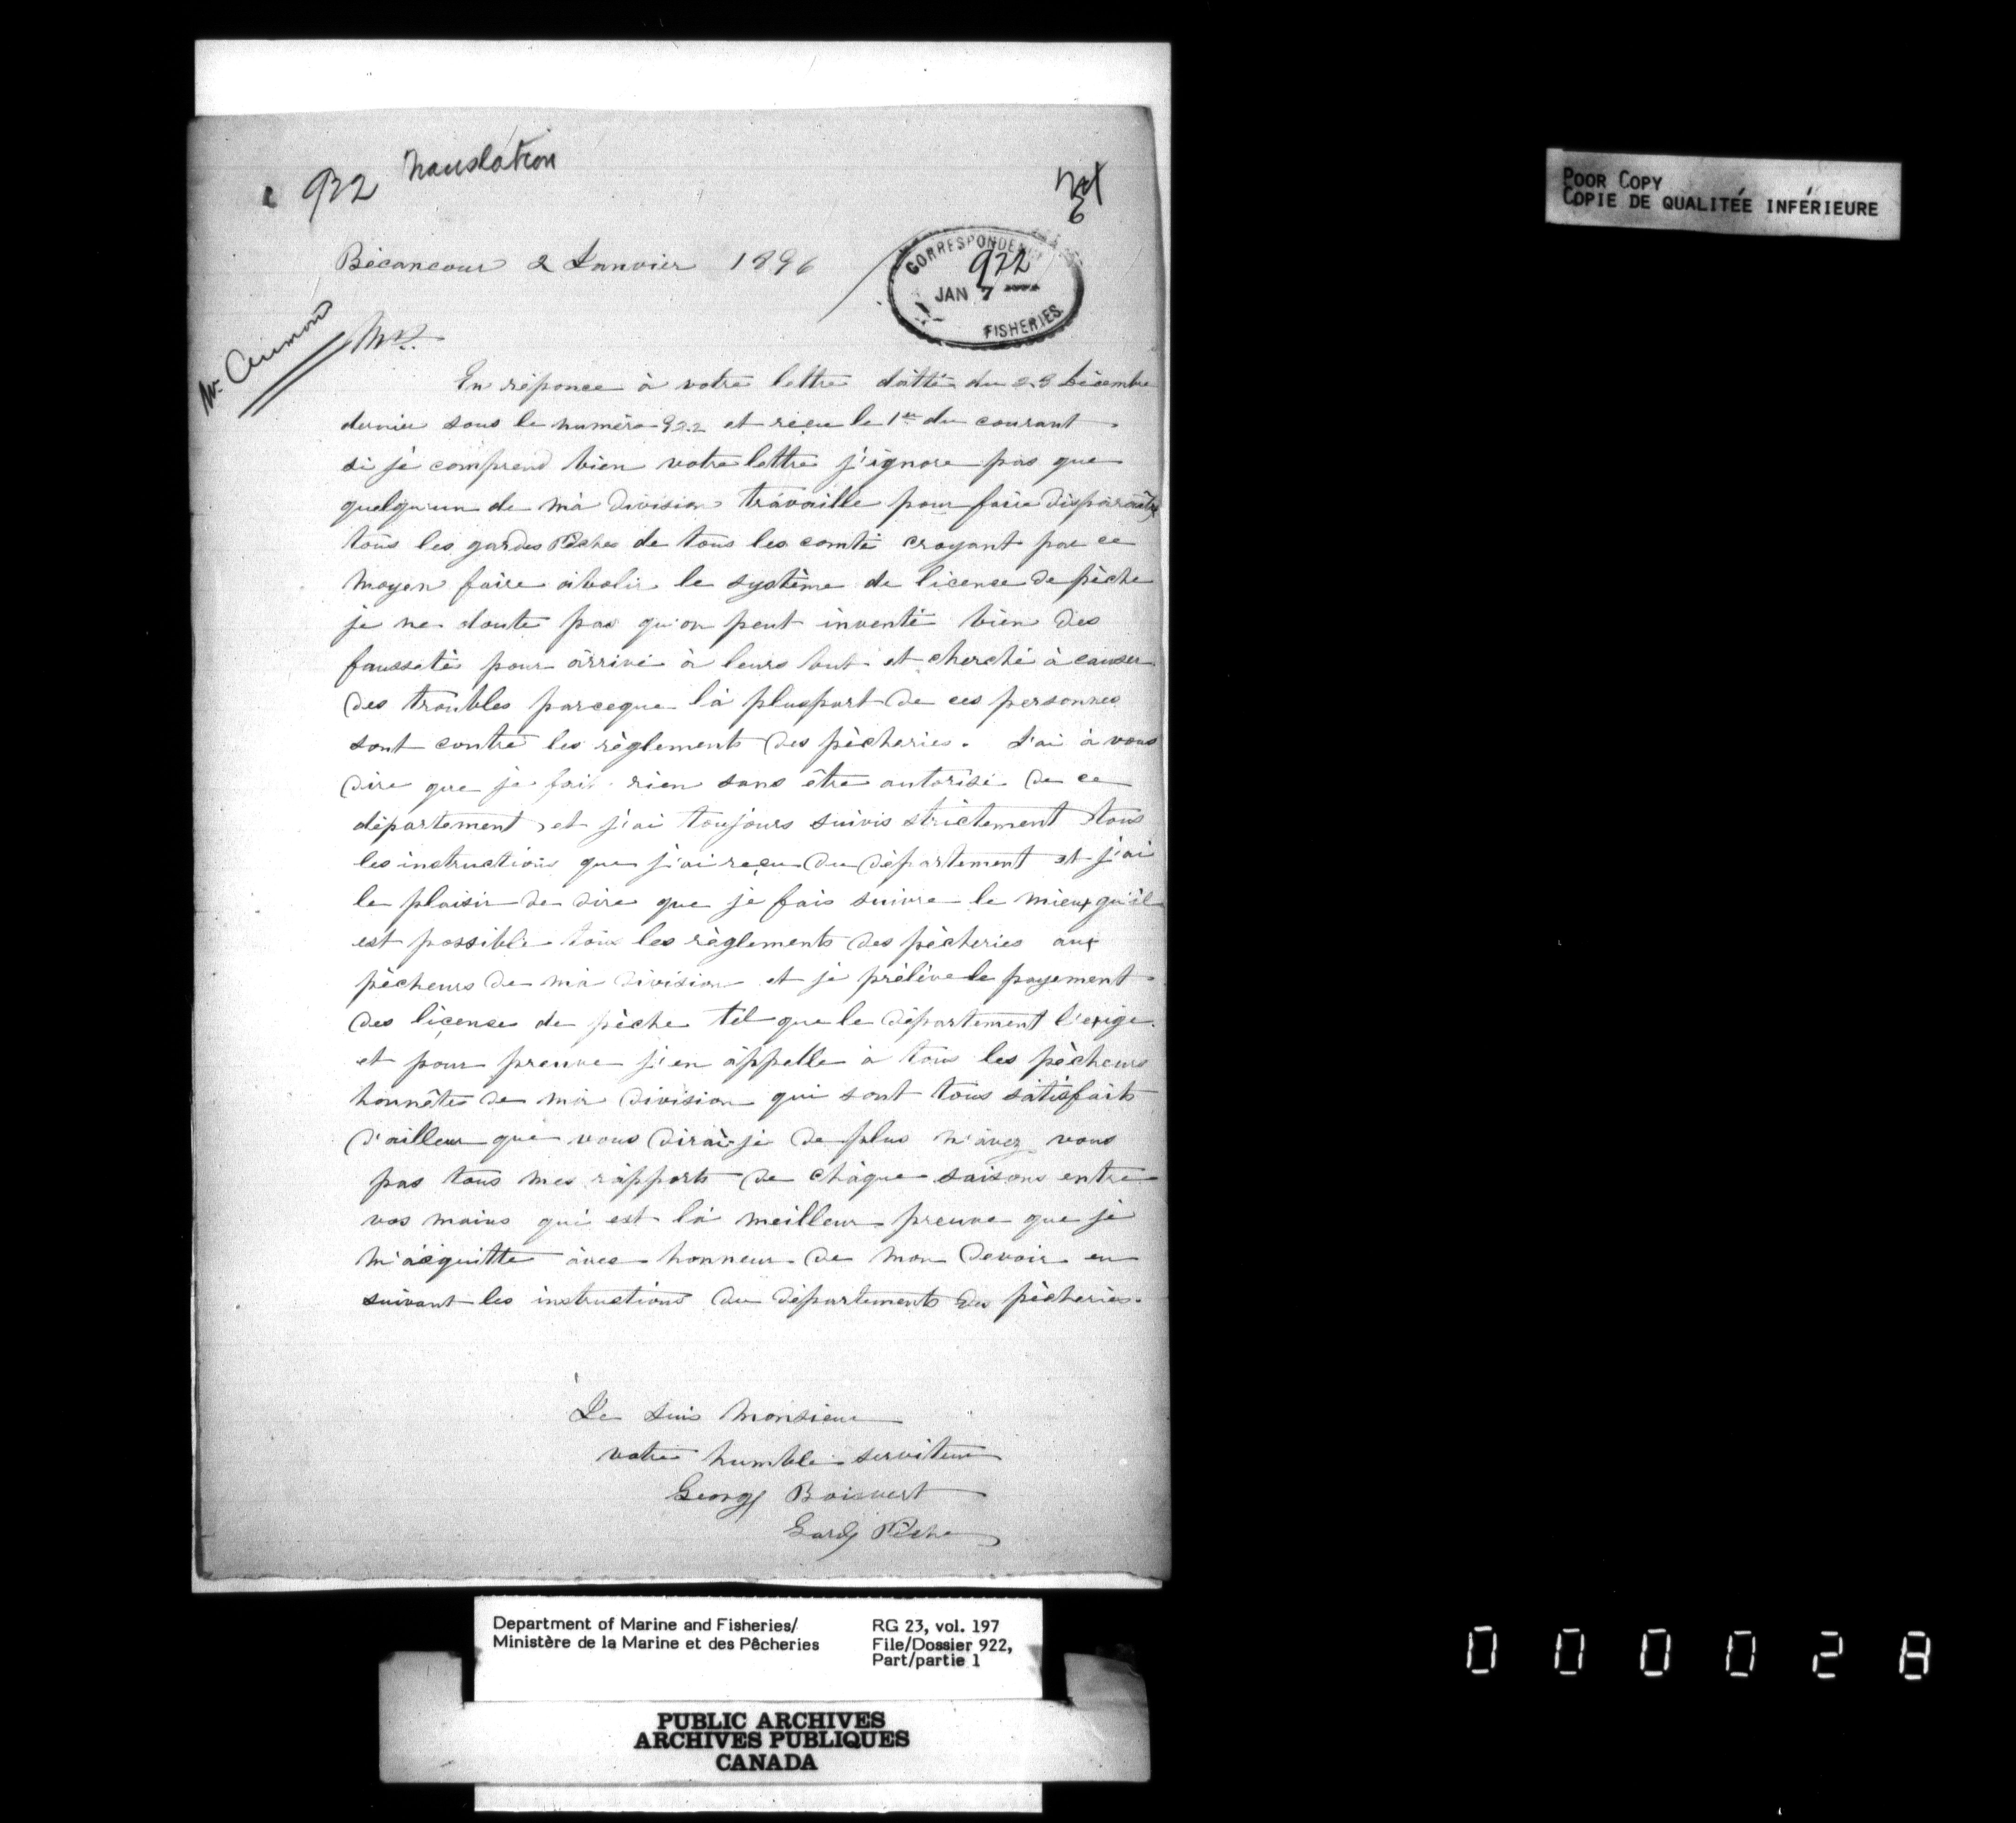 922 Translation
POOR COPY
COPIE DE QUALITÉE INFÉRIEURE
Bécancour 2 Janvier 1896
CORRESPONDENCE
922
JAN 7
FISHERIES
Mr.
Mr.
En réponce à votre lettre dâtté du 23 Décembre
dernier sous le numéro 922 et reçue le 1er du courant
si jé comprend bien votre lettre j'ignore pas que
quelqu'un de mà division travaille pour faire disparaître
tous les gardes Pêches de tous les comté croyant par ce
moyen faire abolir le système de licence de pêche
je ne doute pas qu'on peut inventé bien des
faussetés pour àrrivé à leurs but et cherché à causer
des troubles parceque là pluspart de ces personnes
sont contre les règlements des pêcheries. J'ai à vous
dire que je fait rien sans être autorisé de ce
département et j'ai toujours suivis strictement tous
les instructions que j'ai reçu du département et j'ai
le plaisir de dire que jé fais suivre le mieux qu'il
est possible tous les règlements des pêcheries aux
pêcheurs de mà division et jé prélève le payement
des license de pêche tel que le département l'exige
et pour preuve j'en àppelle à tous les pêcheurs
honnêtes de mà division qui sont tous sàtisfaits
d'ailleur que vous dirài-je de plus n'àvez vous
pas tous mes ràpports de chàque saisons entre
vos mains qui est là meilleur preuve que jé
m'àcquitte àvec honneur de mon devoir en
suivant les instructions du départements des pêcheries.
Je suis monsieur
votre humble serviteur
George Boisvert
Garde Pêche
Department of Marine and Fisheries/
Ministère de la Marine et des Pêcheries
RG 23, vol. 197
File/Dossier 922,
Part/partie 1
PUBLIC ARCHIVES
ARCHIVES PUBLIQUES
CANADA
000028